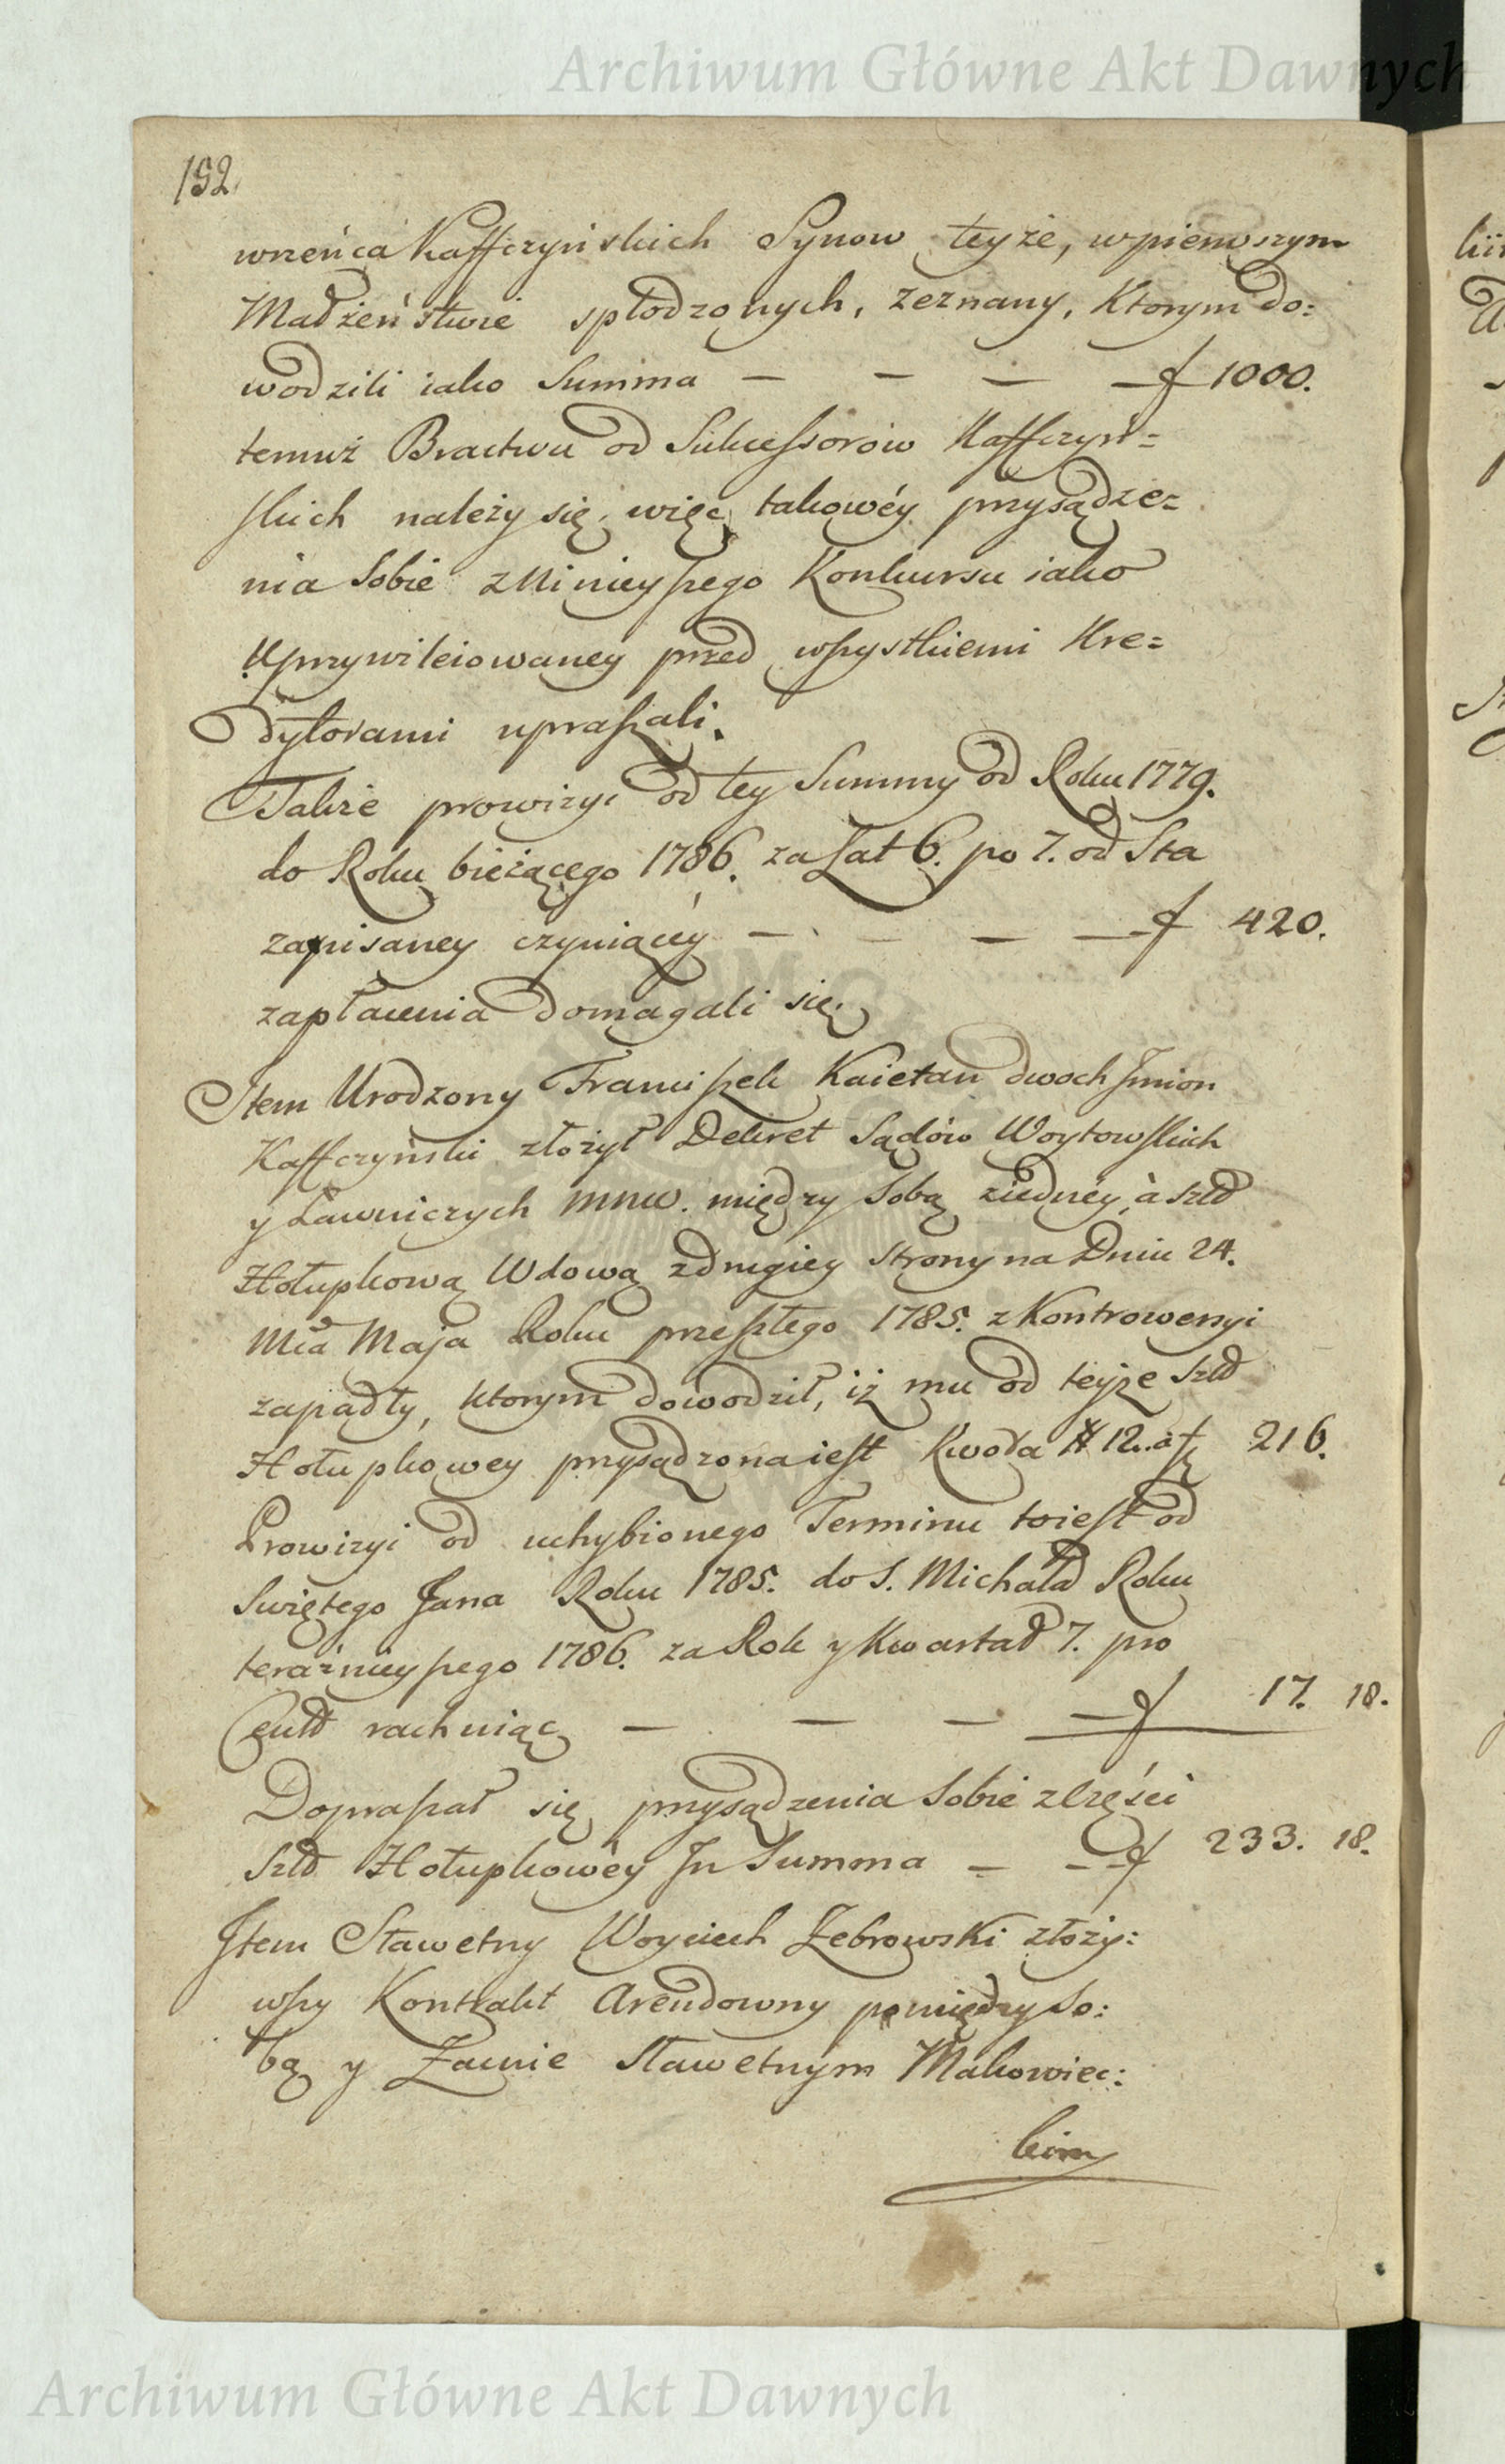 Archiwum Główne Akt Dawnych
192
wrzeńca Kaffczyńskich Synow teyże, w pierwszym
Madżeństwie spłodzonych, zeznany, Ktorym do=
wodzili iako Summa — — — — f 1000.
temuż Bractwu od Sukcessorów Kaffczyń=
skich należy się, więc takowéy przysądze=
nia Sobie z Ninieyszego Konkursu iako
Uprzywileiowaney przed wszystkiemi Kre=
dytorami upraszali.
Takze prowizyi od tey Summy od Roku 1779.
do Roku bieżącego 1786. za Lat 6. po 7. od Sta
zapisaney czyniącéy — — — — f 420.
zapłacenia domagali się.
Item Urodzony Franciszek Kaietan dwoch Imion
Kaffczyński złożył Dekret Sądów Woytowskich
y Ławniczych mnw. między Sobą ziedney, à Szld
Hołupkową Wdową zdrugiey strony na Dniu 24.
Mca Maja Roku przeszłego 1785. z Kontrowersyi
zapadły, ktorym dowodził, iż mu od teyże Szld
Hołupkowey przysądzona iest Kwota # 12. à f 216.
Prowizyi od uchybionego Terminu to iest od
Swiętego Jana Roku 1785. do S. Michała Roku
teraźnieyszego 1786. za Rok y Kwartał 7. pro
Centd rachuiąc — — — — f 17. 18.
Dopraszał się przysądzenia Sobie z Części
Szld Hołupkowéy In Summa — — f 233. 18.
Item Sławetny Woyciech Zebrowski złoży=
wszy Kontrakt Arendowny pomiędzy So=
bą y Zacnie Sławetnym Makowiec=
kim
Archiwum Główne Akt Dawnych